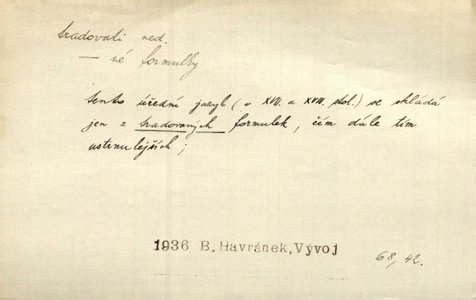 tradovati ned.
— né formulky
tento úřední jazyk (v XVII. a XVIII. stol.) se skládá
jen z tradovaných formulek, čím dále tím
ustrnulejších;
1936 B. Havránek, Vývoj
68, 42.